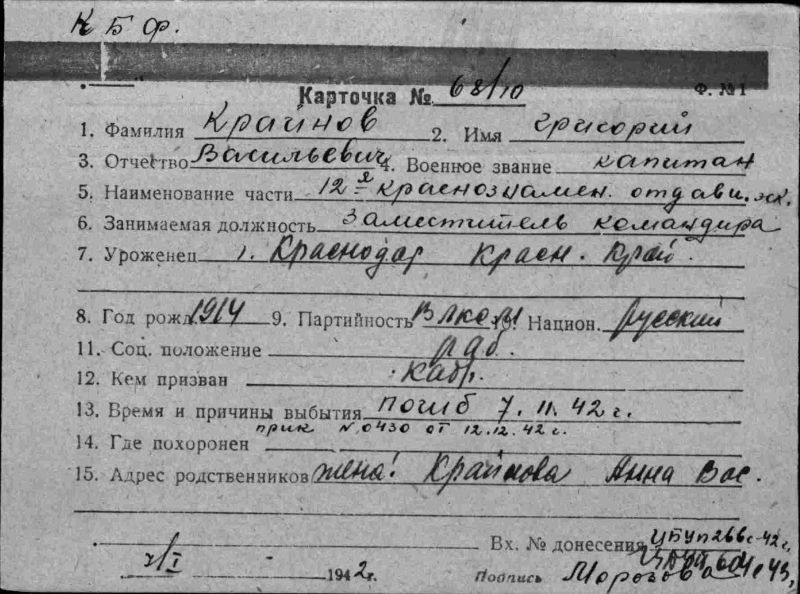 К Б Ф.
Карточка № 68/10 Ф. № 1
1. Фамилия Крайнов 2. Имя Григорий
3. Отчество Васильевич 4. Военное звание капитан
5. Наименование части 12я краснознамен. отд. ави. эск.
6. Занимаемая должность Заместитель командира
7. Уроженец г. Краснодар Красн. Край.
8. Год рожд. 1914 9. Партийность Влксм 10. Национ. Русский
11. Соц. положение раб.
12. Кем призван кадр.
13. Время и причины выбытия погиб 7. 11. 42 г.
прик N 0430 от 12.12.42 г.
14. Где похоронен
15. Адрес родственников жена: Крайнова Анна Вас.
Вх. № донесения 266с-42г.
604с 43,
1942г. Подпись Морозова